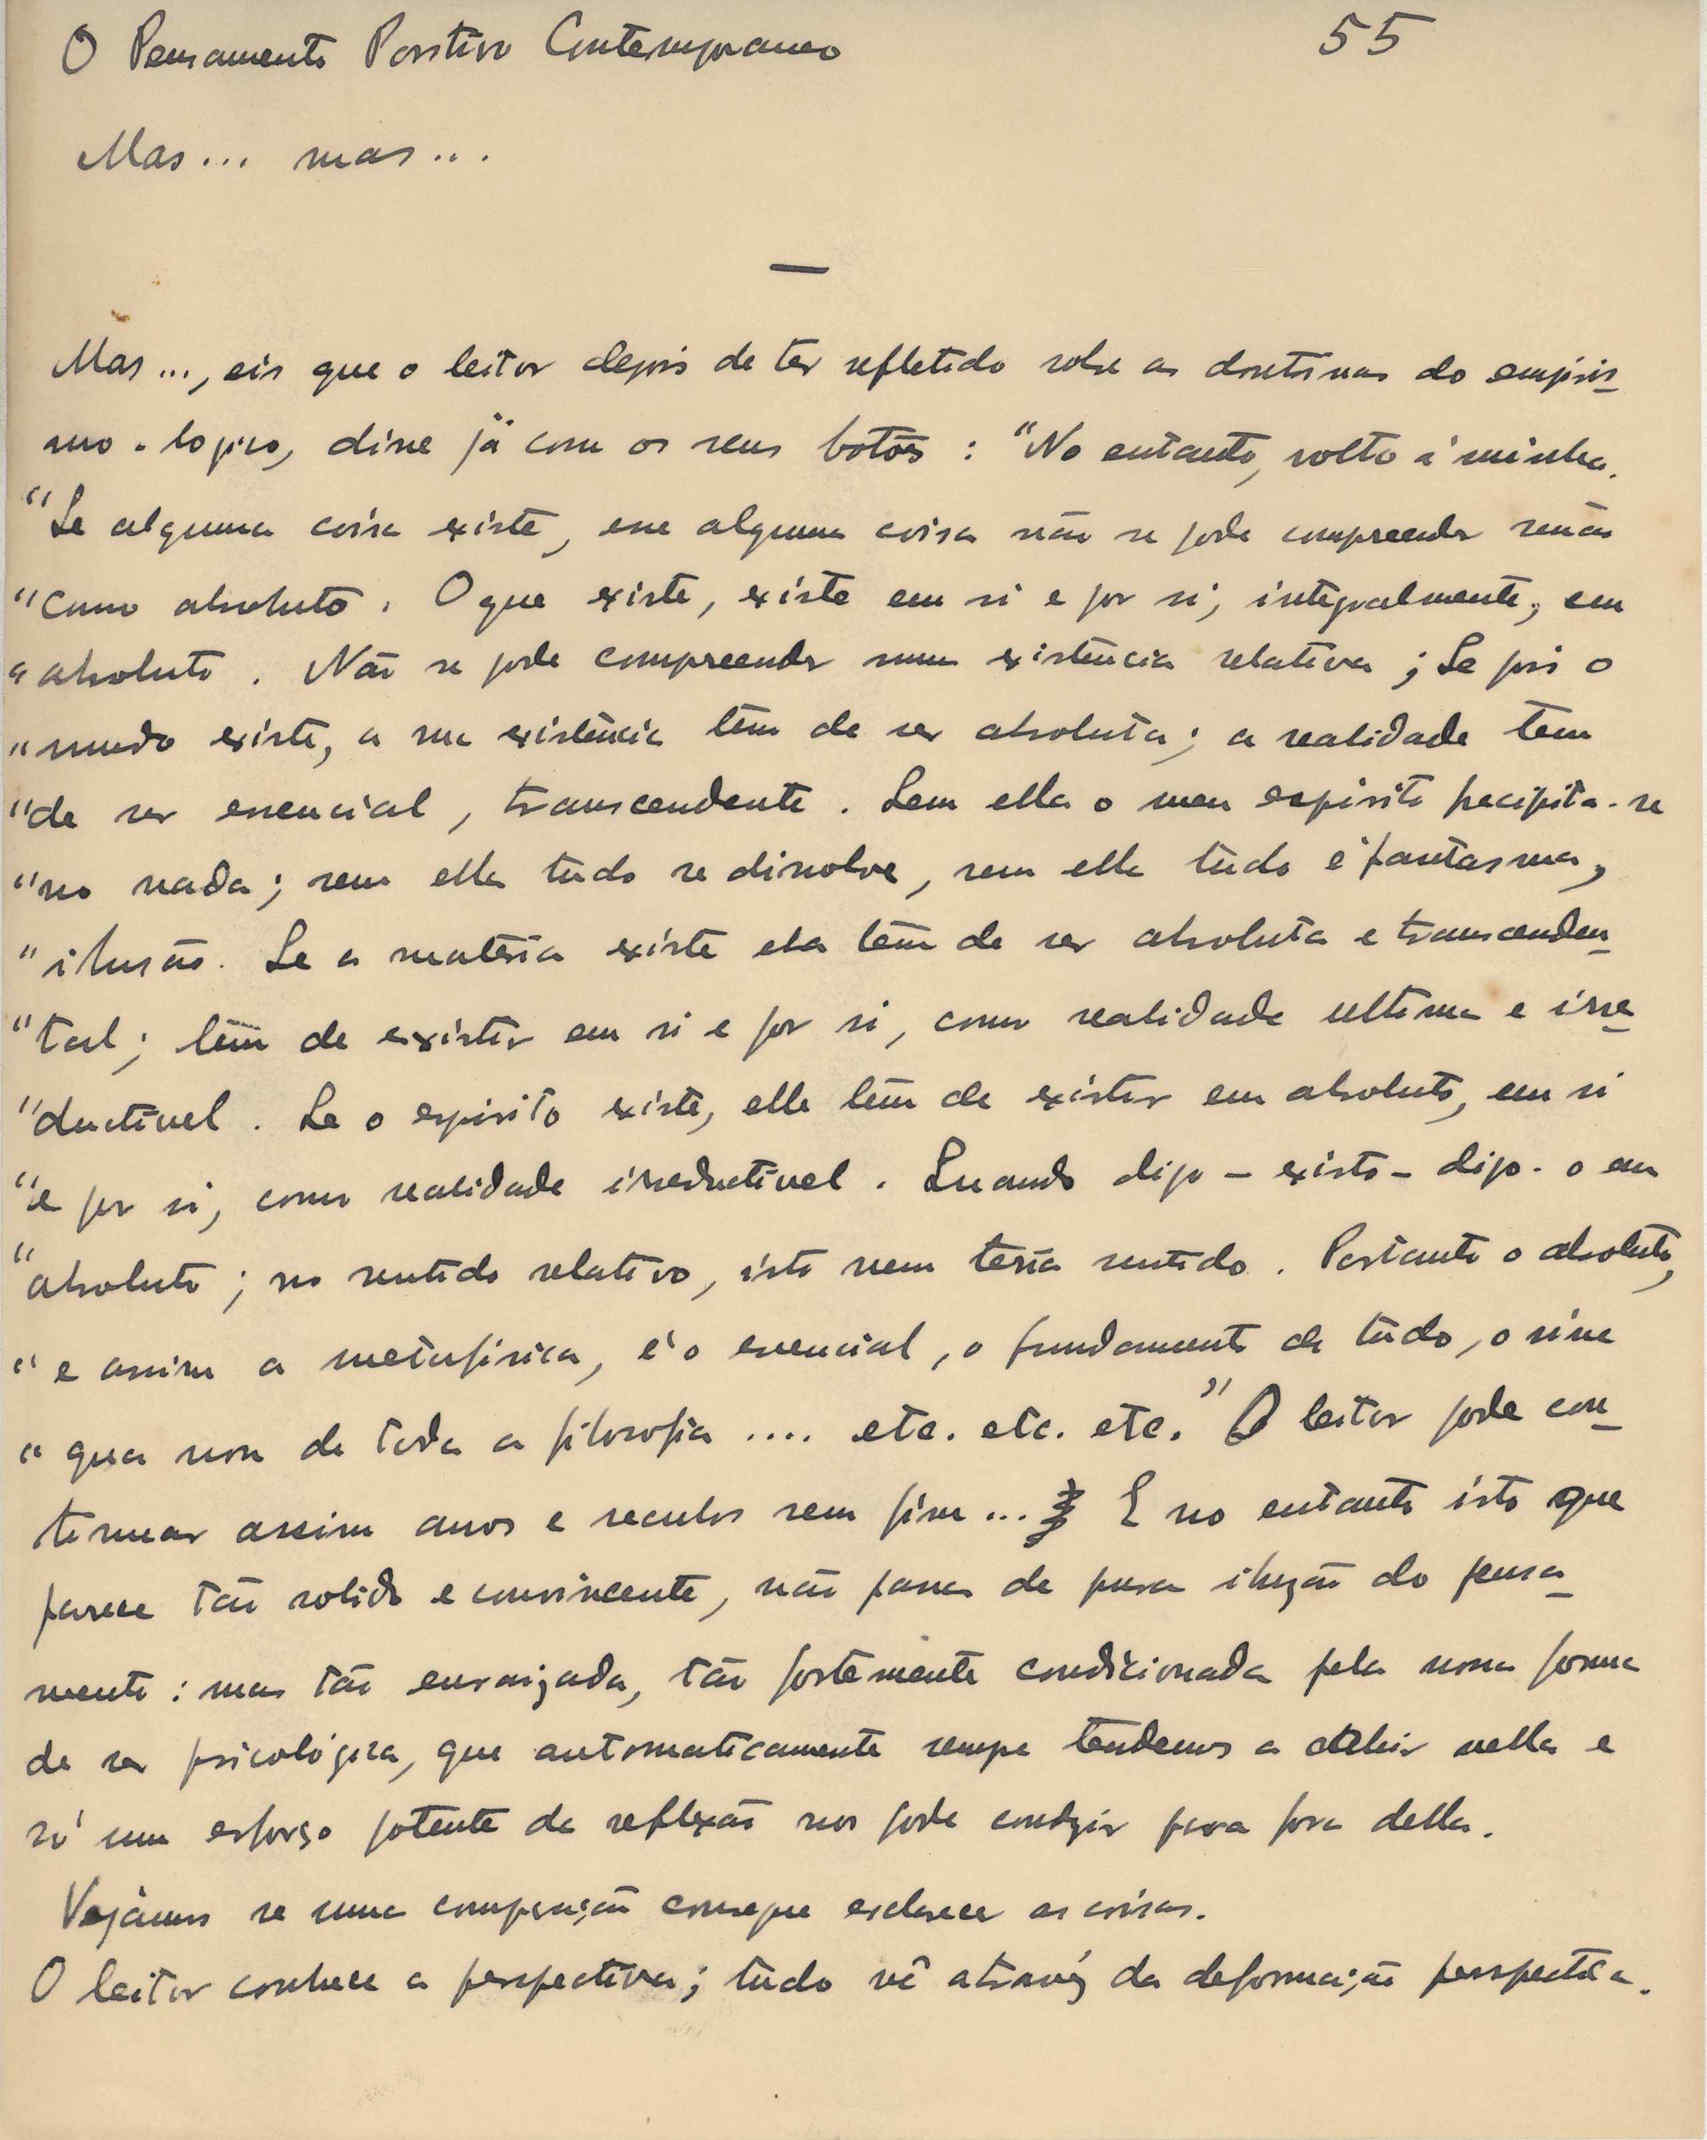 O Pensamento Positivo Contemporaneo 55
Mas... mas...
—
Mas..., eis que o leitor depois de ter refletido sobre as doutrinas do empiris-
mo-logico, disse já com os seus botões: "No entanto, volto á minha.
"Se alguma coisa existe, esse alguma coisa não se pode compreender senão
"como absoluto. O que existe, existe em si e por si, integralmente, em
"absoluto. Não se pode compreender uma existência relativa; Se pois o
"mundo existe, a sua existência têm de ser absoluta; a realidade tem
"de ser essencial, transcendente. Sem ella o meu espirito precipita-se
"no nada; sem ella tudo se dissolve, sem ella tudo é fantasma,
"ilusão. Se a matéria existe ela têm de ser absoluta e transcenden-
"tal; têm de existir em si e por si, como realidade ultima e irre-
"ductivel. Se o espirito existe, elle têm de existir em absoluto, em si
"e por si, como realidade irreductivel. Quando digo - existo - digo-o em
"absoluto; no sentido relativo, isto nem teria sentido. Portanto o absoluto,
"e assim a metafisica, é o essencial, o fundamento de tudo, o sine
"qua non de toda a filosofia .... etc. etc. etc." O leitor pode con-
tinuar assim anos e seculos sem fim... E no entanto isto que
parece tão solido e convincente, não passa de pura ilusão do pensa-
mento: mas tão enraizada, tão fortemente condicionada pela nossa forma
de ser psicológica, que automaticamente sempre tendemos a cahir nella e
só um esforço potente de reflexão nos pode conduzir para fora della.
Vejâmos se uma comparação consegue esclarecer as coisas.
O leitor conhece a perspectiva; tudo vê através da deformação perspectica.